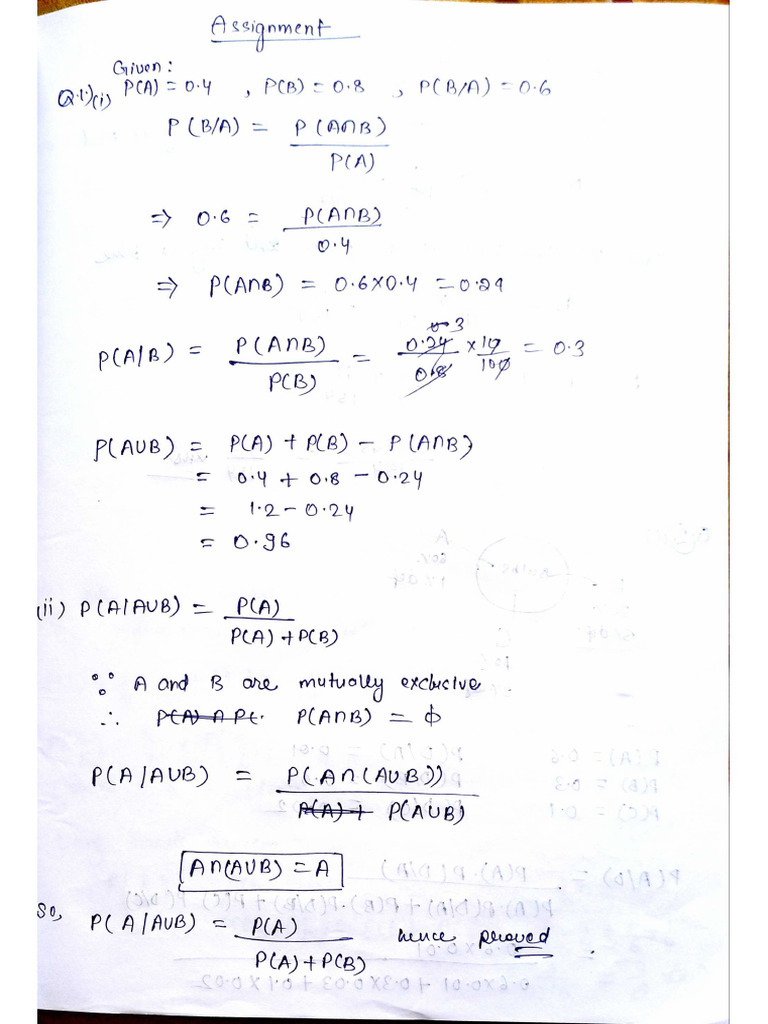 Assignment
Given:
Q.1.)(i) P(A) = 0.4 , P(B) = 0.8 , P(B/A) = 0.6
P(B/A) = P(A∩B)
P(A)
⇒ 0.6 = P(A∩B)
0.4
⇒ P(A∩B) = 0.6×0.4 = 0.24
P(A/B) = P(A∩B) = 0.24 × 10 = 0.3
P(B) 0.8 100
3
P(AUB) = P(A) + P(B) – P(A∩B)
= 0.4 + 0.8 – 0.24
= 1.2 – 0.24
= 0.96
(ii) P(A/AUB) = P(A)
P(A) + P(B)
∵ A and B are mutually exclusive.
∴ P(A∩B) = ϕ
P(A/AUB) = P(A∩(AUB))
P(AUB)
A∩(AUB) = A
So, P(A/AUB) = P(A) hence peroved.
P(A)+P(B)